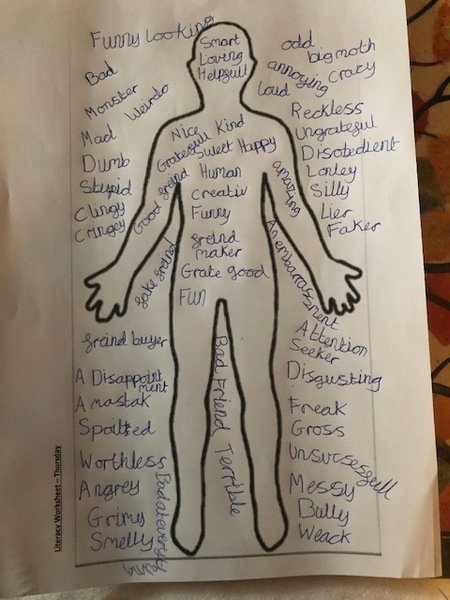 Funny Looking
Smart
Loving
Helpfull
odd
big moth
annoying
crazy
Loud
Bad
Monster
Weirdo
Mad
Dumb
Stupid
Clingy
Cringey
Nice
Gratefull Kind
Sweet Happy
Good freind
Human
Creativ
Funny
amazing
freind
maker
Grate good
FUN
Reckless
Ungratefull
Disobedient
Lonley
Silly
Lier
Faker
fake freind
An embarrassment
Attention
Seeker
Disgusting
Freak
Gross
Unsucsessfull
Messy
Bully
Weack
freind buyer
A Disappoint
ment
A mastak
Spoilted
Worthless
Angrey
Grimy
Smelly
Bad Friend
Terrible
Literacy Worksheet – Thursday